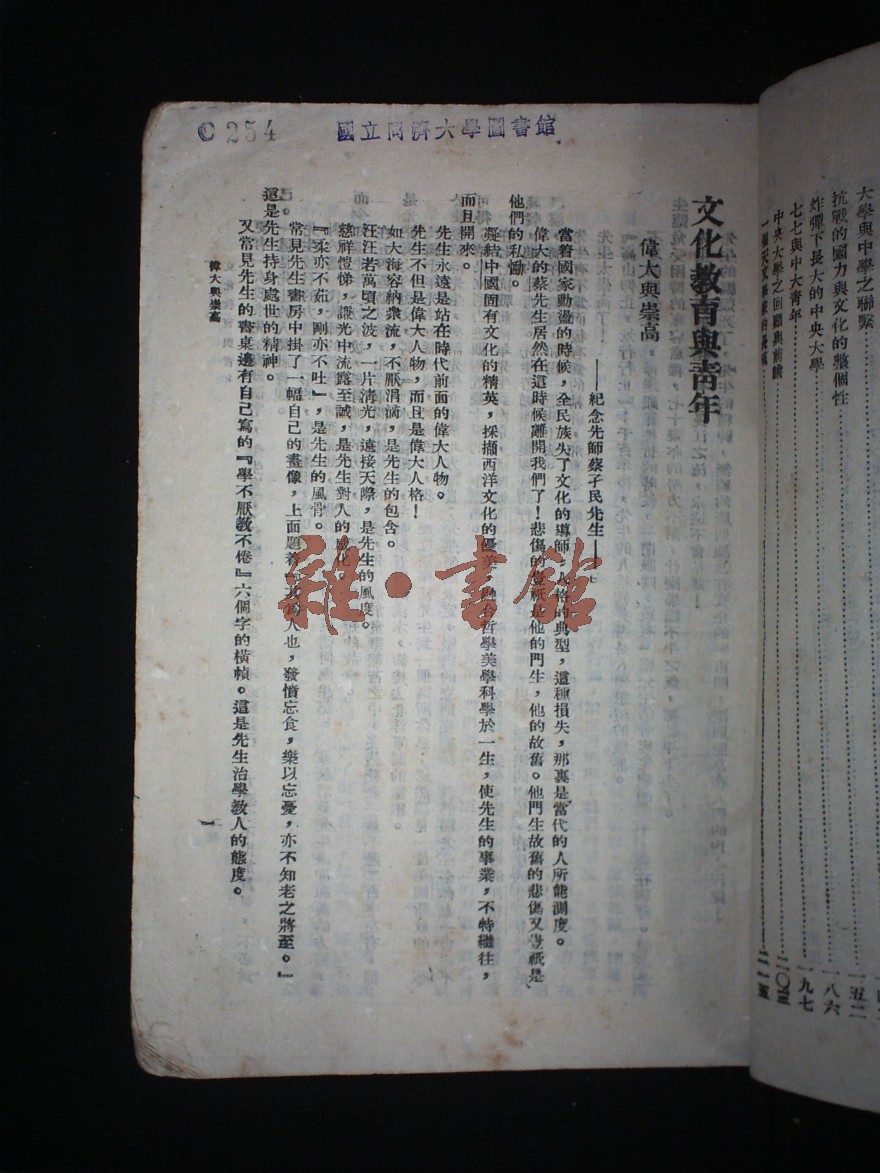 大學與中學之聯繫
抗戰的國力與文化的整個性……一五二
炸彈下長大的中央大學……一八六
七七與中大青年……一九七
中央大學之回顧與前瞻……二〇三
……二一五
C254
國立同濟大學圖書館
文化教育與青年
偉大與崇高
——紀念先師蔡孑民先生——
當着國家動盪的時候，全民族失了文化的導師，人格的典型，這種損失，那裏是當代的人所能測度。
偉大的蔡先生居然在這時候離開我們了！悲傷的豈祇是他的門生，他的故舊。他門生故舊的悲傷又豈祇是
他們的私慟。
凝結中國固有文化的精英，採擷西洋文化的優美，融合哲學美學科學於一生，使先生的事業，不特繼往，
而且開來。
先生永遠是站在時代前面的偉大人物。
先生不但是偉大人物，而且是偉大人格！
如大海容納衆流，不厭涓滴，是先生的包含。
汪汪若萬頃之波，一片清光，遠接天際，是先生的風度。
慈祥愷悌，謙光中流露至誠，是先生對人的感化。
『柔亦不茹，剛亦不吐』，是先生的風骨。
常見先生書房中掛了一幅自己的畫像，上面題着『其爲人也，發憤忘食，樂以忘憂，亦不知老之將至。』
這是先生持身處世的精神。
又常見先生的書桌邊有自己寫的『學不厭教不倦』六個字的橫幀。這是先生治學教人的態度。
偉大與崇高
一
雜·書館